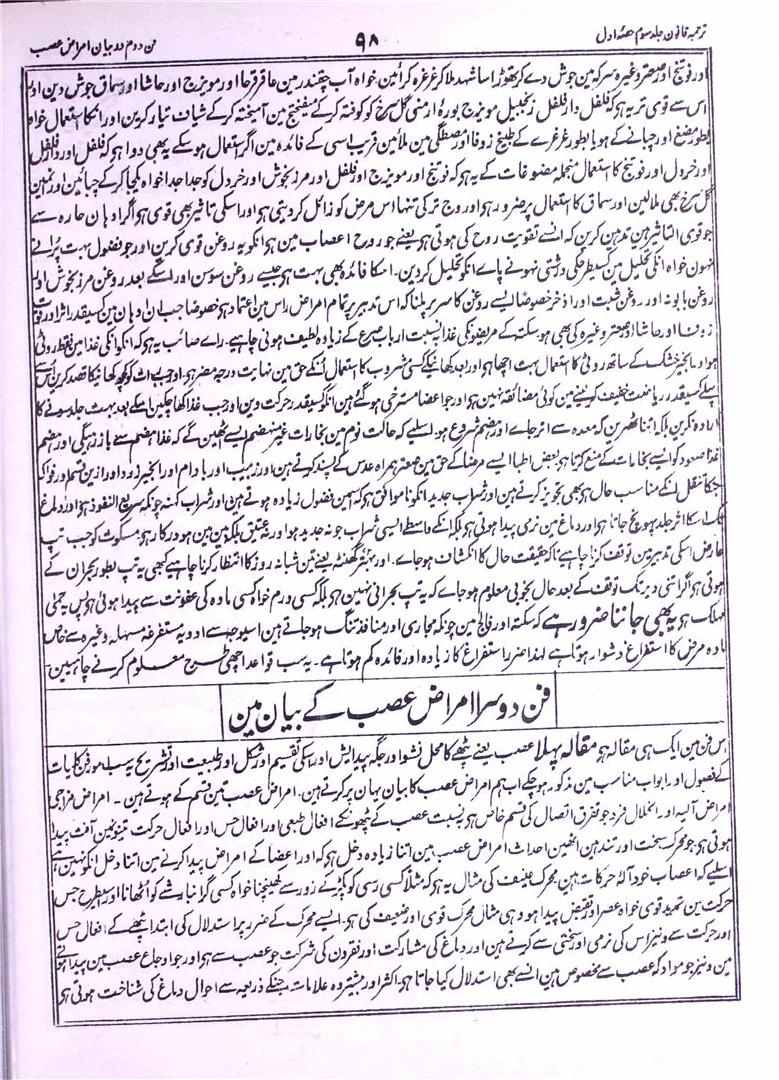 ترجمہ قانون جلد سوم حصۂ اول
۹۸
فن دوم در بیان امراض عصب
اور فوتنج اور صعتر وغیرہ سرکہ مین جوش دے کر تھوڑا سا شہد ملا کر غرغرہ کرائین۔ خواہ آب چقندر مین عاقرقرحا اور مویزج اور حاشا اور سماق جوش دین اور
اس سے قوی تر یہ ہو کہ فلفل دار فلفل زنجبیل مویزج بورۂ ارمنی گل سرخ کو کوفتہ کر کے میفختج مین آمیختہ کر کے شیاف تیار کرین اور انکا استعمال خواہ
بطور مضغ اور چبانے کے ہو یا بطور غرغرے کے طبیخ زوفا اور مصطگی مین ملائین قریب اسی کے فائدہ مین اگر استعمال ہو سکے یہ بھی دوا ہو کہ فلفل اور دار فلفل
اور خردل اور فوتنج کا استعمال منجملہ مضوغات کے یہ ہو کہ فوتنج اور مویزج اور فلفل اور مرزنجوش اور خردل کو جدا جدا خواہ یکجا کر کے چبائین اور انمین
گل سرخ بھی ملا لین اور سماق کا استعمال پر ضرور ہو اور وج ترکی تنہا اس مرض کو زائل کر دیتی ہو اور اسکی تاثیر بھی قوی ہو اگر ادہان حارہ سے
جو قوی التاثیر ہین تدہین کرین کہ اُنسے تقویت روح کی ہوتی ہو یعنے جو روح اعصاب مین ہو انکو یہ روغن قوی کرین اور جو فضول بہت پرانے
نہون خواہ انکی تحلیل مین کسیطرحکی درشتی نہونے پاے انکو تحلیل کر دین۔ اسکا فائدہ بھی بہت ہو جیسے روغن سوسن اور اسکے بعد روغن مرزنجوش اور
روغن بابونہ اور روغن شبت اور اذخر خصوصاً ایسے روغن کا سر پر ملنا کہ اس تدبیر پر تمام امراض راس مین اعتماد ہو خصوصاً جب ان ادہان مین کسیقدر اثر اور قوت
زوفا اور حاشا اور صعتر وغیرہ کی بھی ہو سکتہ کے مریضونکی غذا بنسبت ارباب صرع کے زیادہ لطیف ہونی چاہیے۔ راے صائب یہ ہو کہ انکو انکی غذا مین فقط روٹی
ہو اور انجیر خشک کے ساتھ روٹی کا استعمال بہت اچھا ہو اور بعد کھانیکے کسی مشروب کا استعمال اُنکے حق مین نہایت درجہ مضر ہو۔ اور جب رات کو کچھ کھانیکا قصد کرین اُس سے
پہلے کسیقدر ریاضت خفیف کر لینے مین کوئی مضائقہ نہین ہو اور جو اعضا مسترخی ہو گئے ہین انکو کسیقدر حرکت دین اور جب غذا کھا چکین اسکے بعد بہت جلد سونیکا
ارادہ نکرین بلکہ اتنا ٹھہرین کہ معدہ سے اتر جاے اور ہضم شروع ہو۔ اسلیے کہ حالت نوم مین بخارات غیر منہضم ایسے اٹھین گے کہ غذا ہضم سے باز رہیگی اور ہضم
غذا صعود کو ایسے بخارات کے منع کرتا ہو بعض اطبا ایسے مرضا کے حق مین صعتر ہمراہ عدس کے پسند کرتے ہین اور زبیب اور بادام اور انجیر زرد اور ازین قسم اور فواکہ
جنکا تنقل انکے مناسب حال ہو بھی تجویز کرتے ہین اور شراب جدید انکو نا موافق ہو کہ اسمین فضول زیادہ ہوتے ہین اور شراب کہنہ چونکہ سریع النفوذ ہو اور دماغ
تک اسکا اثر جلد پہونچ جاتا ہو اور دماغ مین نرمی پیدا ہوتی ہو بلکہ انکے واسطے ایسی شراب جو نہ جدید ہو اور نہ عتیق بلکہ بین بین ہو درکار ہو۔ مسکوت کو جب تپ
عارض اسکی تدبیر مین توقف کرنا چاہیے تاکہ حقیقت حال کا انکشاف ہو جاے۔ اور بہتر گھنٹہ یعنے تین شبانہ روز کا انتظار کرنا چاہیے کبھی یہ تپ بطور بحران کے
ہوتی ہو اگر اتنی دیر تک توقف کے بعد حال بخوبی معلوم ہو جاے کہ یہ تپ بحرانی نہین ہو بلکہ کسی ورم خواہ کسی مادہ کی عفونت سے پیدا ہوئی ہو پس یہ حمی
مہلک ہو یہ بھی جاننا ضرور ہے کہ سکتہ اور فالج مین چونکہ مجاری اور منافذ تنگ ہو جاتے ہین اسیوجہ سے ادویہ مستفرغہ مسہلہ وغیرہ سے خاص
مادہ مرض کا استفراغ دشوار ہوتا ہے لہذا ضرر استفراغ کا زیادہ اور فائدہ کم ہوتا ہے۔ یہ سب قواعد اچھی طرح معلوم کرنے چاہیین
فن دوسرا امراض عصب کے بیان مین
اس فن مین ایک ہی مقالہ ہو مقالہ پہلا عصب یعنے پٹھے کا محل نشو اور جگہ پیدایش اور اسکی تقسیم اور شکل اور طبیعت اور تشریح یہ سب امور فن کلیات
کے فصول اور ابواب مناسب مین مذکور ہو چکے اب ہم امراض عصب کا بیان یہان پر کرتے ہین۔ امراض عصب تین قسم کے ہوتے ہین۔ امراض مزاجی
امراض آلیہ اور انحلال فرد جو تفرق اتصال کی قسم خاص ہو بنسبت عصب کے چھونکے افعال طبعی اور افعال حس اور افعال حرکت تینونمین آفت پیدا
ہوتی ہو جو محرک سخت اور تند ہین انھین احداث امراض عصب مین اتنا زیادہ دخل ہو کہ اور اعضا کے امراض پیدا کرنے مین اتنا دخل انکو نہین ہے
اسلیے کہ اعصاب خود آلۂ حرکات ہین محرک عنیف کی مثال یہ ہو کہ مثلاً کسی رسی کو پکڑ کے زور سے کھینچنا خواہ کسی گرانبار شے کو اُٹھانا اور اسیطرح جس
حرکت مین تمدید قوی خواہ عصر اور تقبیض پیدا ہو وہی مثال محرک قوی اور ضعیف کی ہو۔ ایسے محرک کے ضرر پر استدلال کی ابتدا پٹھے کے افعال حس
اور حرکت سے و نیز اس کی نرمی اور سختی سے کرتے ہین اور دماغ کی مشارکت اور نقرون کی شرکت جو عصب سے ہو اور جو اوجاع عصب مین پیدا ہوتے
ہین و نیز جو مواد کہ عصب سے مخصوص ہین اُنسے بھی استدلال کیا جاتا ہو۔ اکثر اور بیشتر وہ علامات جنکے ذریعہ سے احوال دماغ کی شناخت ہوتی ہو